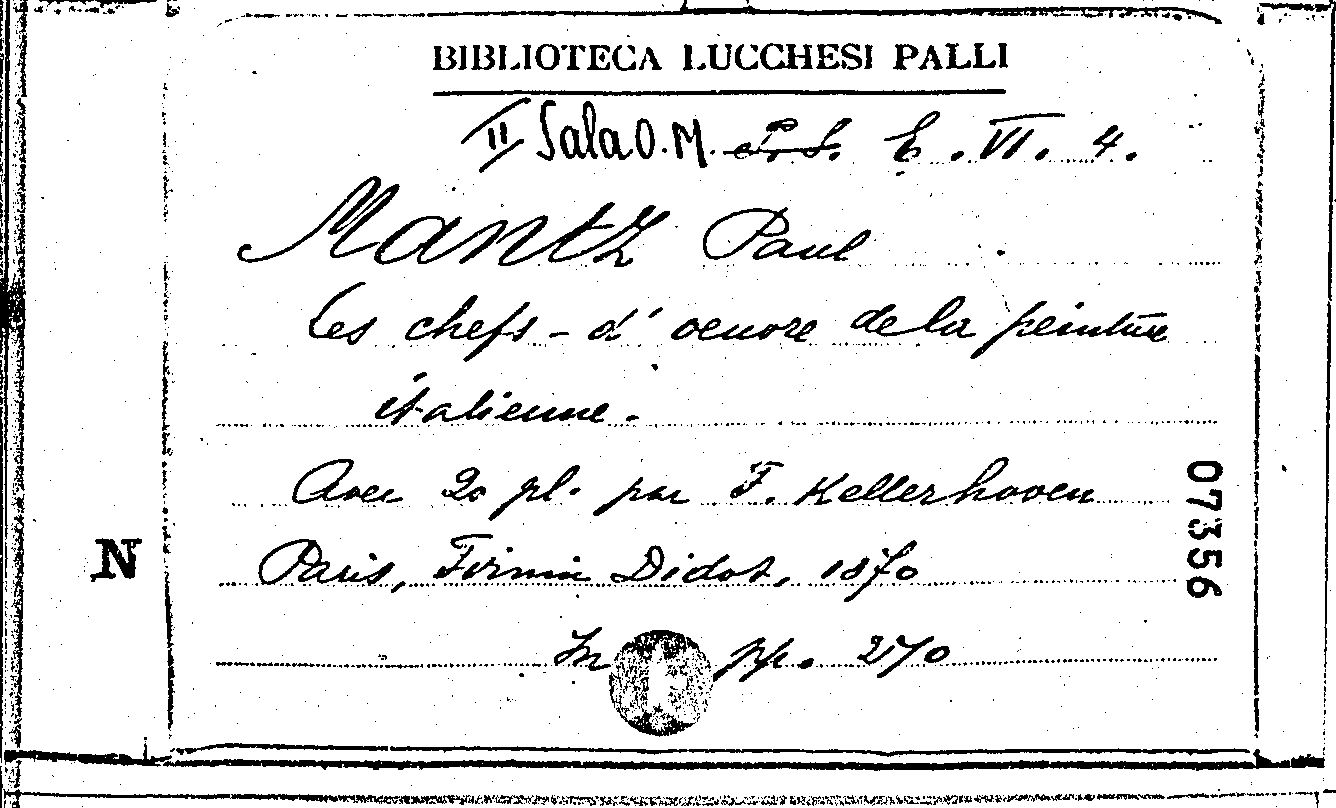 BIBLIOTECA LUCCHESI PALLI
II Sala O.M. P.S. E. VI. 4.
Mantz Paul
Les chefs-d'oeuvre de la peinture
italienne.
Avec 20 pl. par F. Kellerhoven
Paris, Firmin Didot, 1870
In pp. 270
N
07356